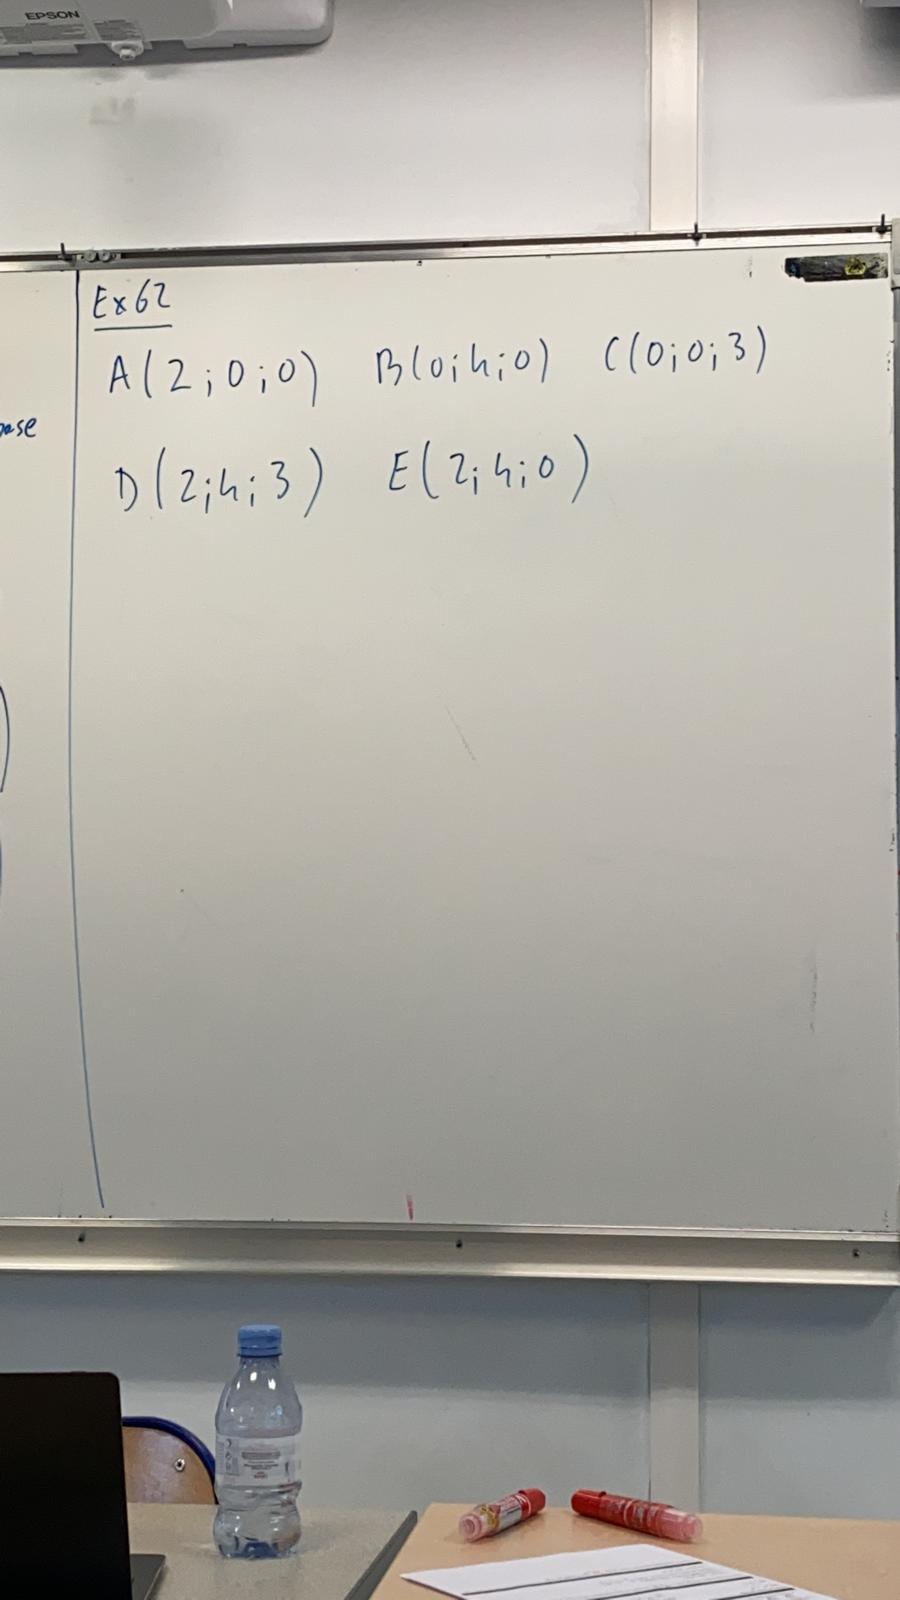 EPSON
Ex 62
A(2;0;0) B(0;4;0) C(0;0;3)
D(2;4;3) E(2;4;0)